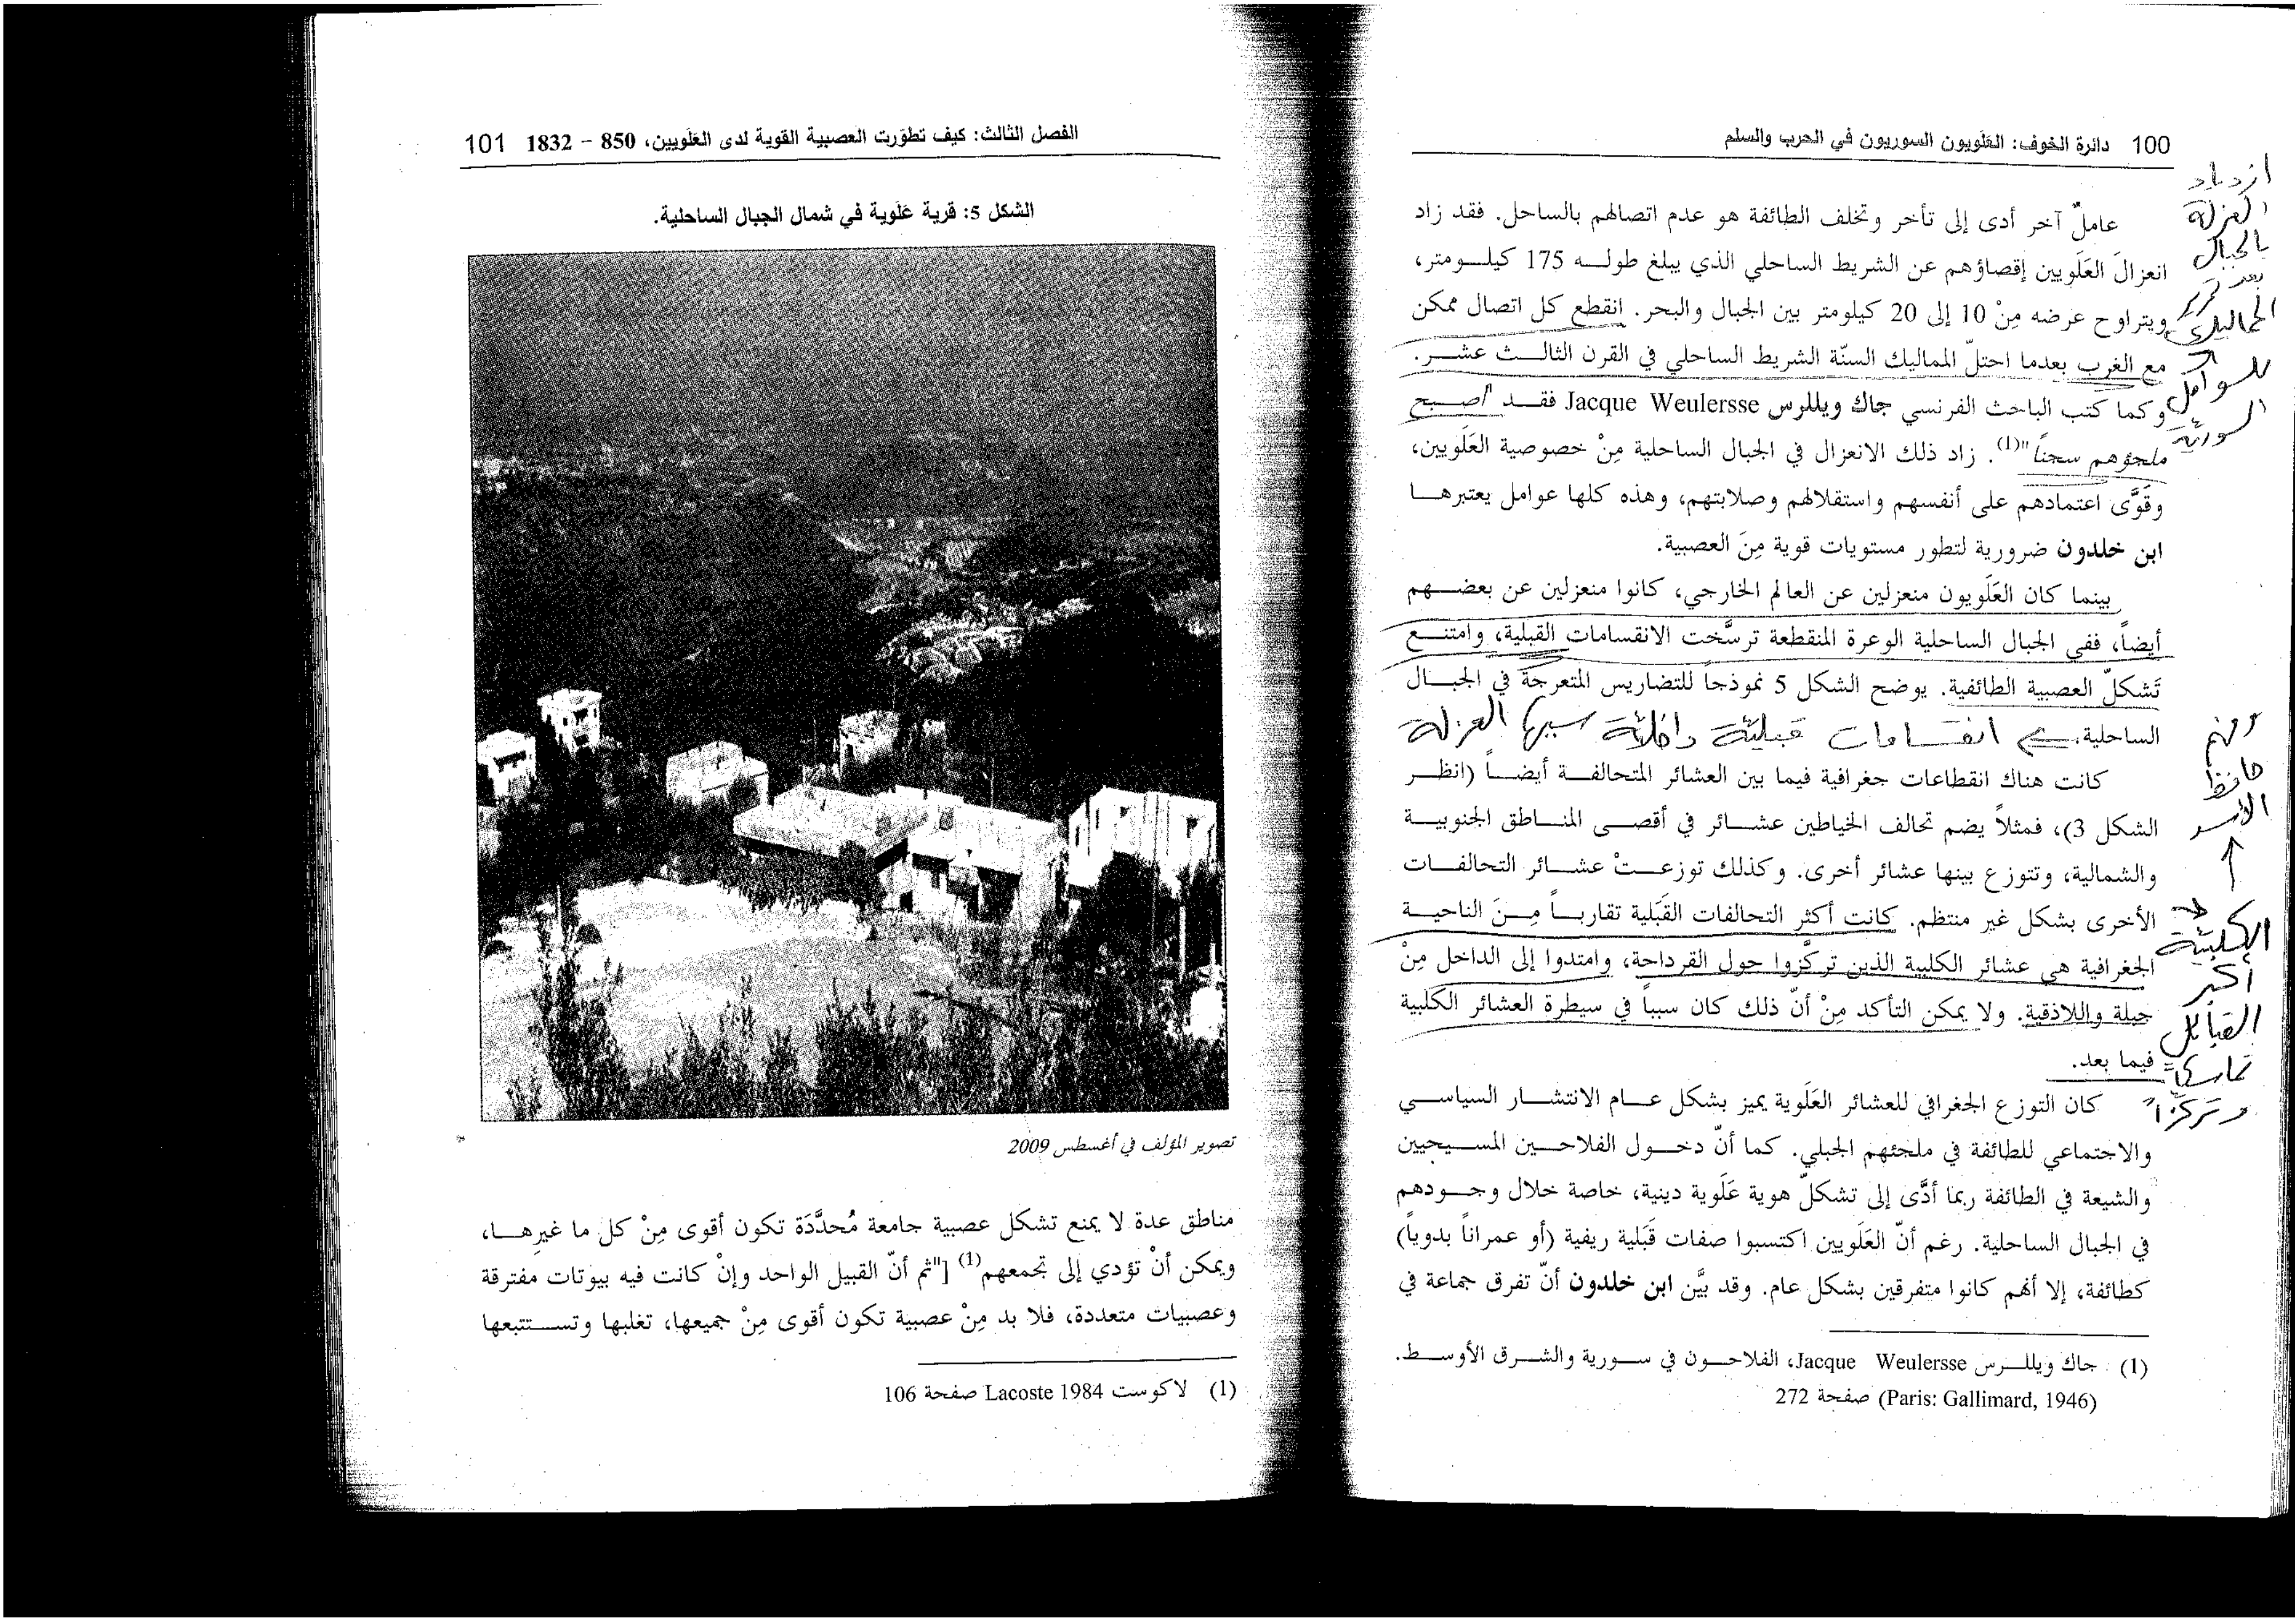 100 دائرة الخوف: العَلَويون السوريون في الحرب والسلم
عاملٌ آخر أدى إلى تأخر وتخلف الطائفة هو عدم اتصالهم بالساحل. فقد زاد
انعزالَ العَلَويين إقصاؤهم عن الشريط الساحلي الذي يبلغ طولـــه 175 كيلـــومتر،
ويتراوح عرضه مِنْ 10 إلى 20 كيلومتر بين الجبال والبحر. انقطع كل اتصال ممكن
مع الغرب بعدما احتلّ المماليك السنّة الشريط الساحلي في القرن الثالـــث عشـــر.
وكما كتب الباحث الفرنسي جاك ويللرس Jacque Weulersse فقـــد "اصـــبح
ملجؤهم سجناً"(1). زاد ذلك الانعزال في الجبال الساحلية مِنْ خصوصية العَلَويين،
وقَوَّى اعتمادهم على أنفسهم واستقلالهم وصلابتهم، وهذه كلها عوامل يعتبرهـــا
ابن خلدون ضرورية لتطور مستويات قوية مِنَ العصبية.
بينما كان العَلَويون منعزلين عن العالم الخارجي، كانوا منعزلين عن بعضـــهم
أيضاً، ففي الجبال الساحلية الوعرة المنقطعة ترسَّخت الانقسامات القبلية، وامتنـــع
تَشكلّ العصبية الطائفية. يوضح الشكل 5 نموذجاً للتضاريس المتعرجة في الجبـــال
الساحلية.
انقسامات قبليّة داخليّة سببها العزلة
كانت هناك انقطاعات جغرافية فيما بين العشائر المتحالفـــة أيضـــاً (انظـــر
الشكل 3)، فمثلاً يضم تحالف الخياطين عشـــائر في أقصـــى المنـــاطق الجنوبيـــة
والشمالية، وتتوزع بينها عشائر أخرى. وكذلك توزعـــتْ عشـــائر التحالفـــات
الأخرى بشكل غير منتظم. كانت أكثر التحالفات القَبَلية تقاربـــاً مِـــنَ الناحيـــة
الجغرافية هي عشائر الكلبية الذين تركَّزوا حول القرداحة، وامتدوا إلى الداخل مِنْ
جبلة واللاذقية. ولا يمكن التأكد مِنْ أنّ ذلك كان سبباً في سيطرة العشائر الكلبية
فيما بعد.
كان التوزع الجغرافي للعشائر العَلَوية يميز بشكل عـــام الانتشـــار السياســـي
والاجتماعي للطائفة في ملجئهم الجبلي. كما أنّ دخـــول الفلاحـــين المســـيحيين
والشيعة في الطائفة ربما أدَّى إلى تشكلّ هوية عَلَوية دينية، خاصة خلال وجـــودهم
في الجبال الساحلية. رغم أنّ العَلَويين اكتسبوا صفات قَبَلية ريفية (أو عمراناً بدوياً)
كطائفة، إلا أنهم كانوا متفرقين بشكل عام. وقد بيَّن ابن خلدون أنّ تفرق جماعة في
(1) جاك ويللـــرس Jacque Weulersse، الفلاحـــون في ســـورية والشـــرق الأوســـط.
(Paris: Gallimard, 1946) صفحة 272
ازدياد
العزلة
بالجبال
بعد
للسواحل
السوريّة
حافظ
الأسد
الكلبيّة
أكبر
القبائل
تماسكاً
وتركزاً
الفصل الثالث: كيف تطوّرت العصبية القوية لدى العَلَويين، 850 - 1832 101
الشكل 5: قرية عَلَوية في شمال الجبال الساحلية.
تصوير المؤلف في أغسطس 2009
مناطق عدة لا يمنع تشكل عصبية جامعة مُحدَّدَة تكون أقوى مِنْ كل ما غيرِهـــا،
ويمكن أنْ تؤدي إلى تجمعهم(1) ["ثم أنّ القبيل الواحد وإنْ كانت فيه بيوتات مفترقة
وعصبيات متعددة، فلا بد مِنْ عصبية تكون أقوى مِنْ جميعها، تغلبها وتســـتتبعها
(1) لاكوست Lacoste 1984 صفحة 106